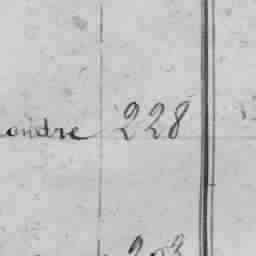 ondre 228